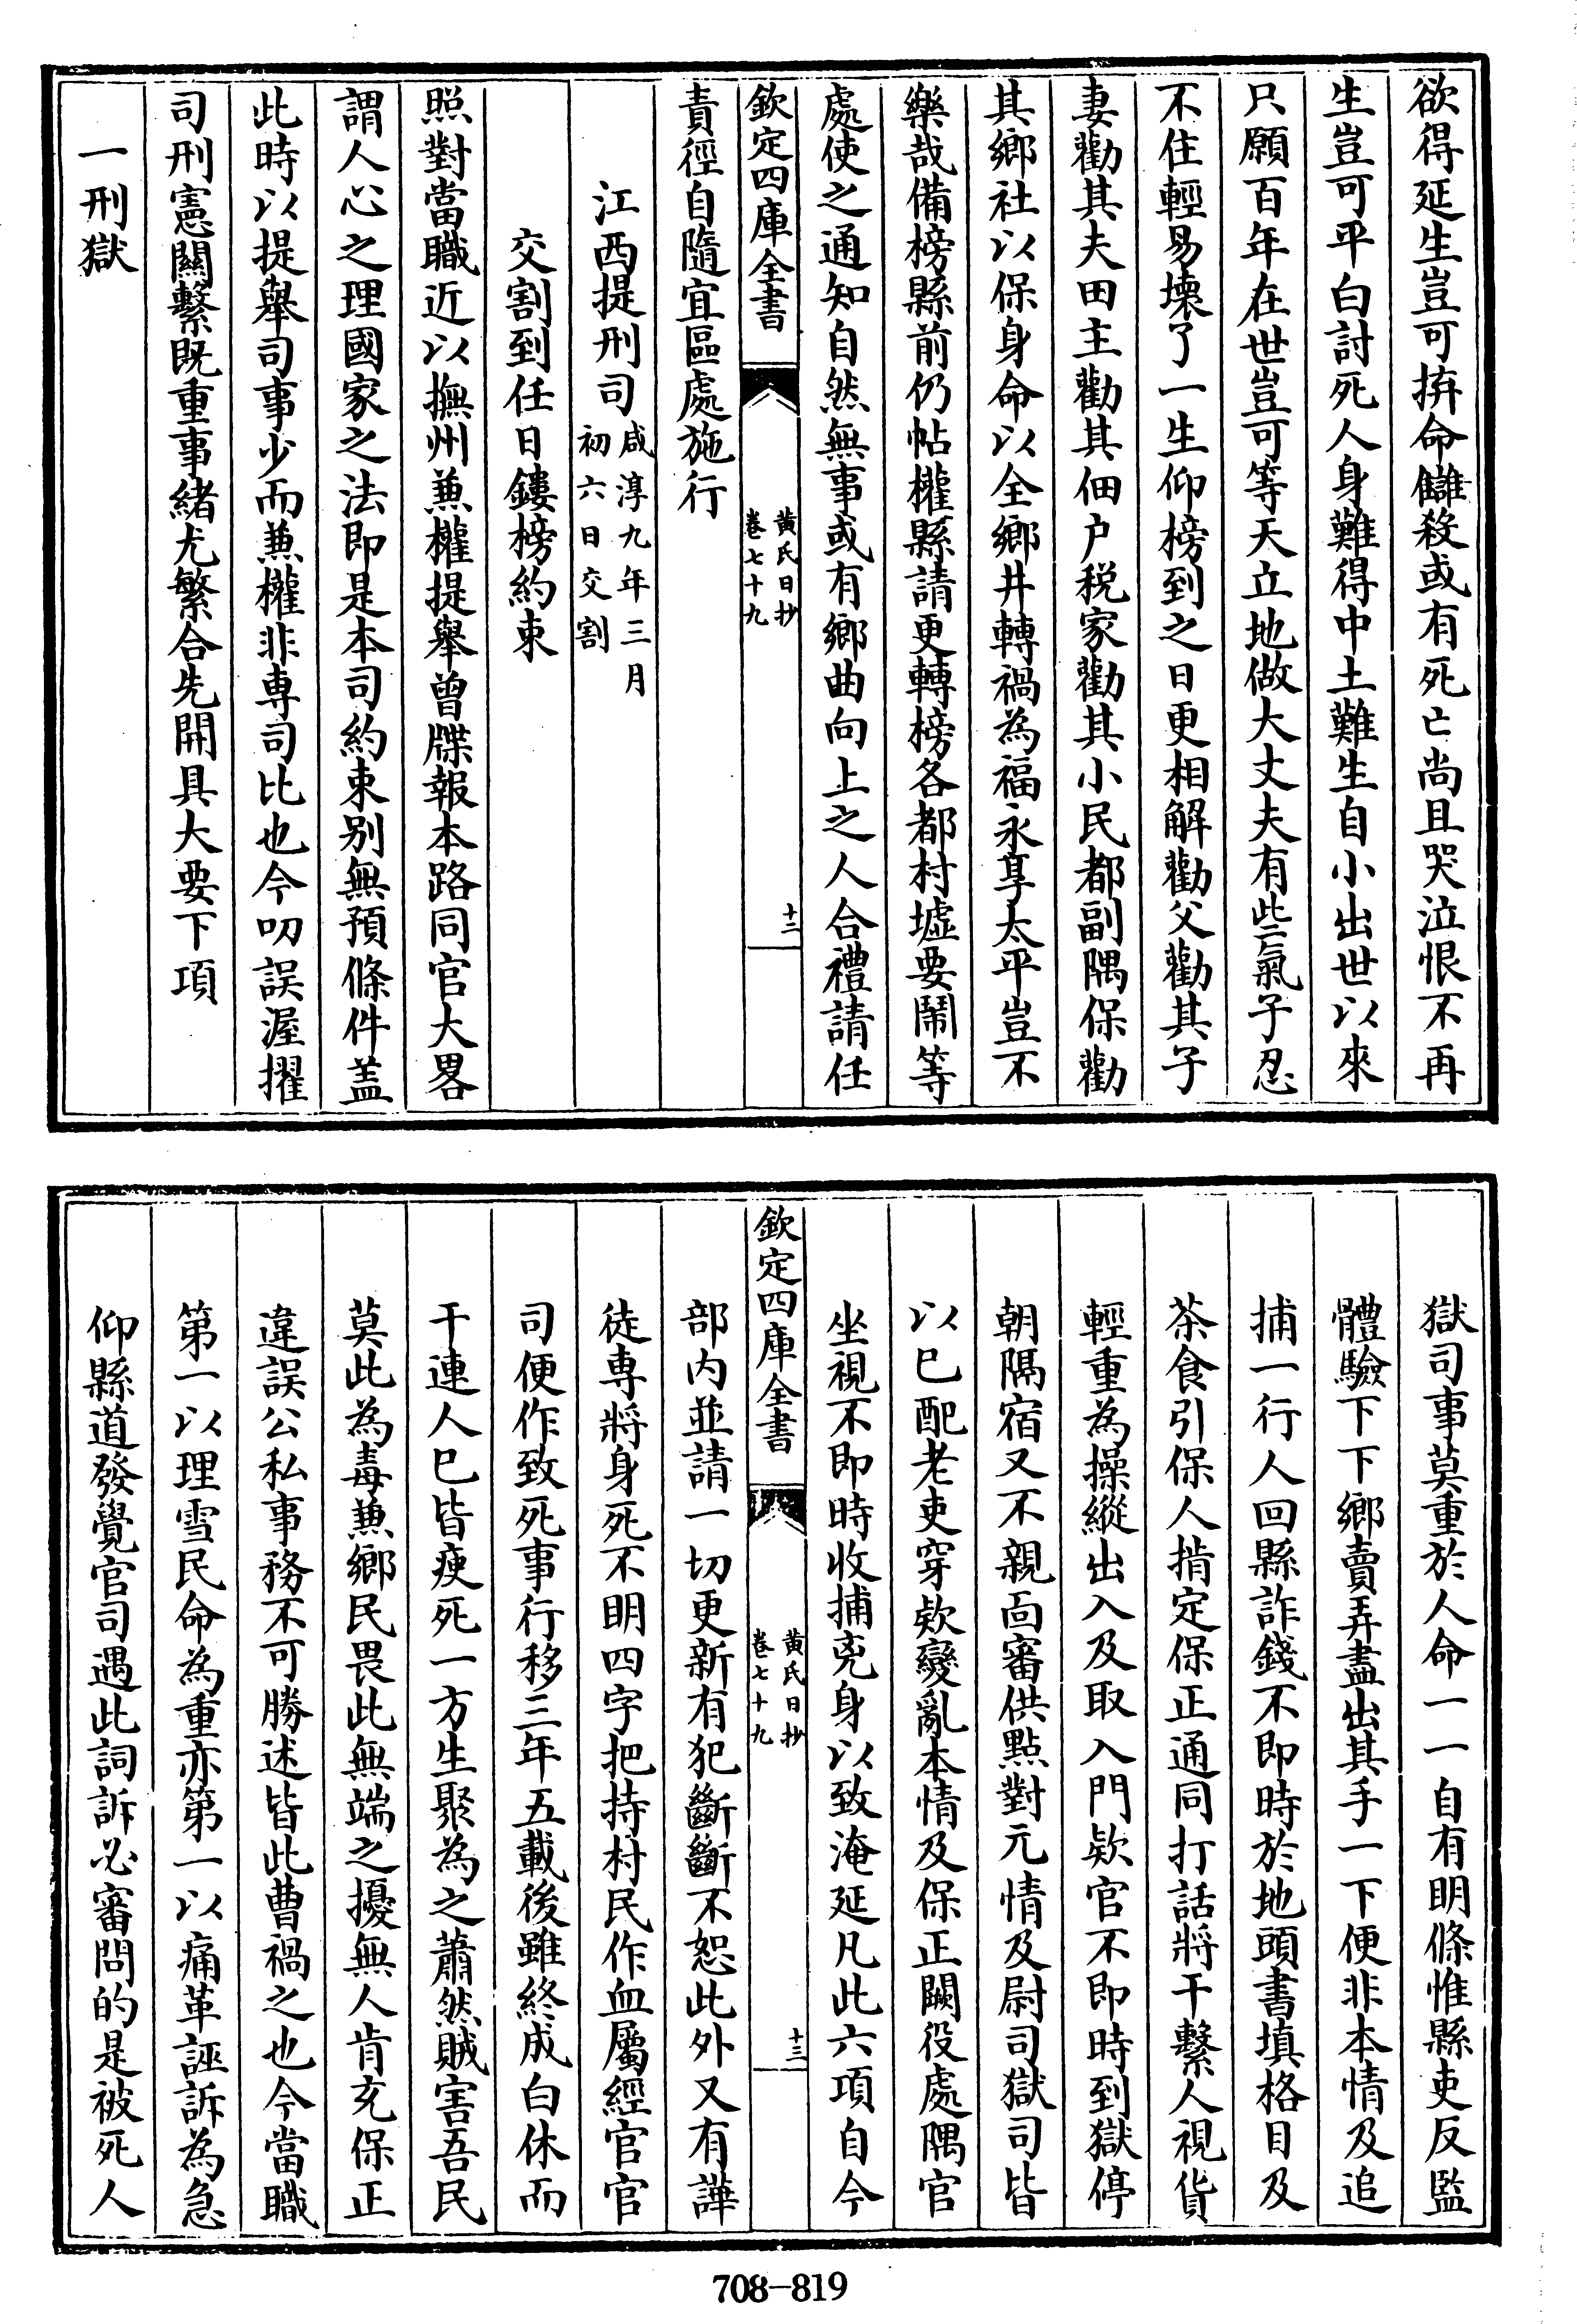 欲得延生豈可拚命讎殺或有死亡尚且哭泣恨不再
生豈可平白討死人身難得中土難生自小出世以來
只願百年在世豈可等天立地做大丈夫有些氣子忍
不住輕易壞了一生仰榜到之日更相解勸父勸其子
妻勸其夫田主勸其佃户税家勸其小民都副隅保勸
其鄉社以保身命以全鄉井轉禍為福永享太平豈不
樂哉備榜縣前仍帖權縣請更轉榜各都村墟要鬧等
處使之通知自然無事或有鄉曲向上之人合禮請任
欽定四庫全書
黄氏日抄
卷七十九
十二
責徑自隨宜區處施行
江西提刑司咸淳九年三月
初六日交割
交割到任日鏤榜約束
照對當職近以撫州兼權提舉曾牒報本路同官大畧
謂人心之理國家之法即是本司約束别無預條件盖
此時以提舉司事少而兼權非専司比也今叨誤渥擢
司刑憲關繫既重事緒尤繁合先開具大要下項
一刑獄
獄司事莫重於人命一一自有明條惟縣吏反監
體驗下下鄉賣弄盡出其手一下便非本情及追
捕一行人回縣詐錢不即時於地頭書填格目及
茶食引保人揹定保正通同打話將干繫人視貨
輕重為操縱出入及取入門欵官不即時到獄停
朝隔宿又不親靣審供點對元情及尉司獄司皆
以已配老吏穿欵變亂本情及保正闕役處隅官
坐視不即時收捕兇身以致淹延凡此六項自今
欽定四庫全書
黄氏日抄
卷七十九
十三
部内並請一切更新有犯斷斷不恕此外又有譁
徒専將身死不明四字把持村民作血屬經官官
司便作致死事行移三年五載後雖終成白休而
干連人已皆瘐死一方生聚為之蕭然賊害吾民
莫此為毒兼鄉民畏此無端之擾無人肯充保正
違誤公私事務不可勝述皆此曹禍之也今當職
第一以理雪民命為重亦第一以痛革誣訴為急
仰縣道發覺官司遇此詞訴必審問的是被死人
708-819